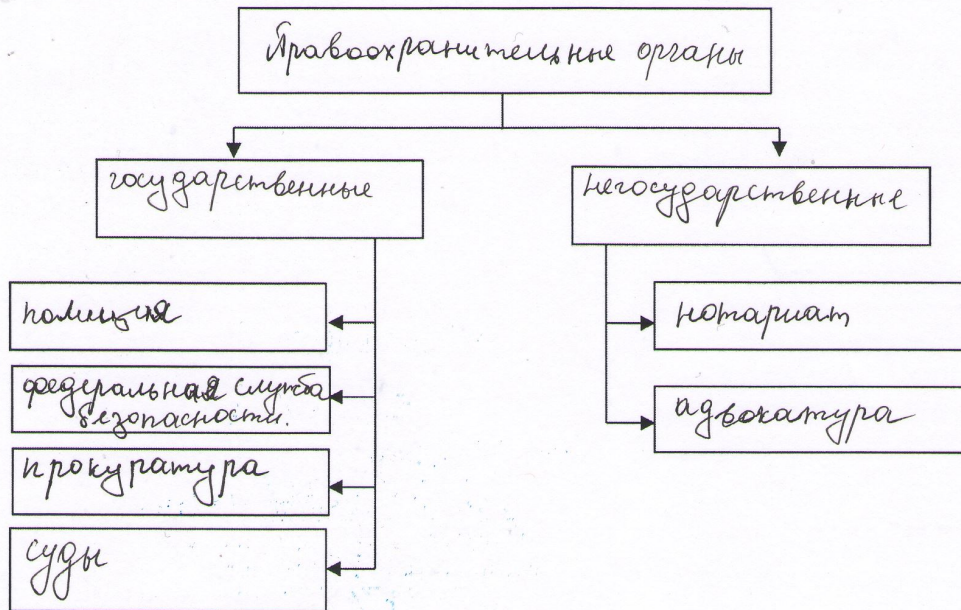 Правоохранительные органы
государственные
негосударственные
полиция
федеральная служба
безопасности.
прокуратура
суды
нотариат
адвокатура